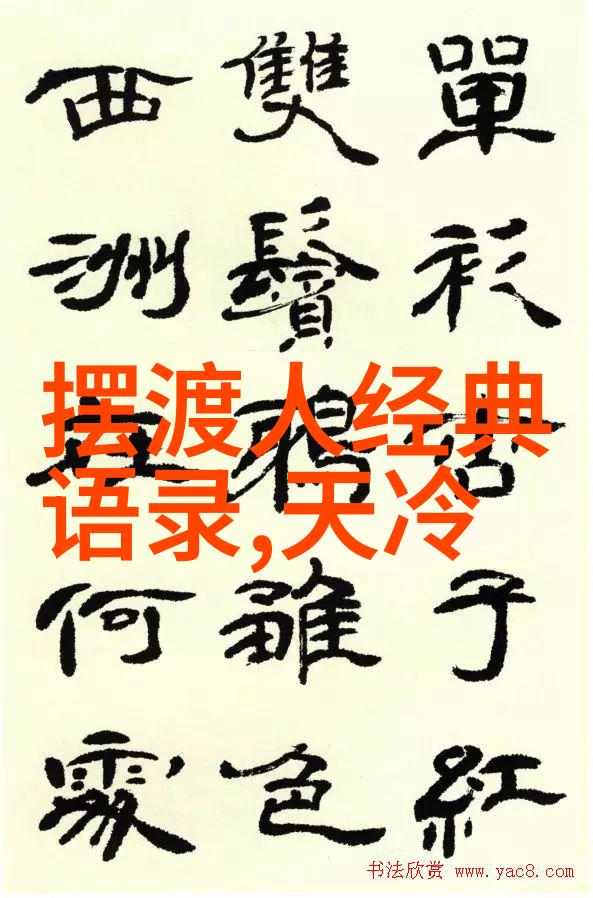 單衫杏子紅
雙鬢鴉雛色
西洲在何處
摆渡人经典
语录,天冷
书法欣赏 www.yac8.com